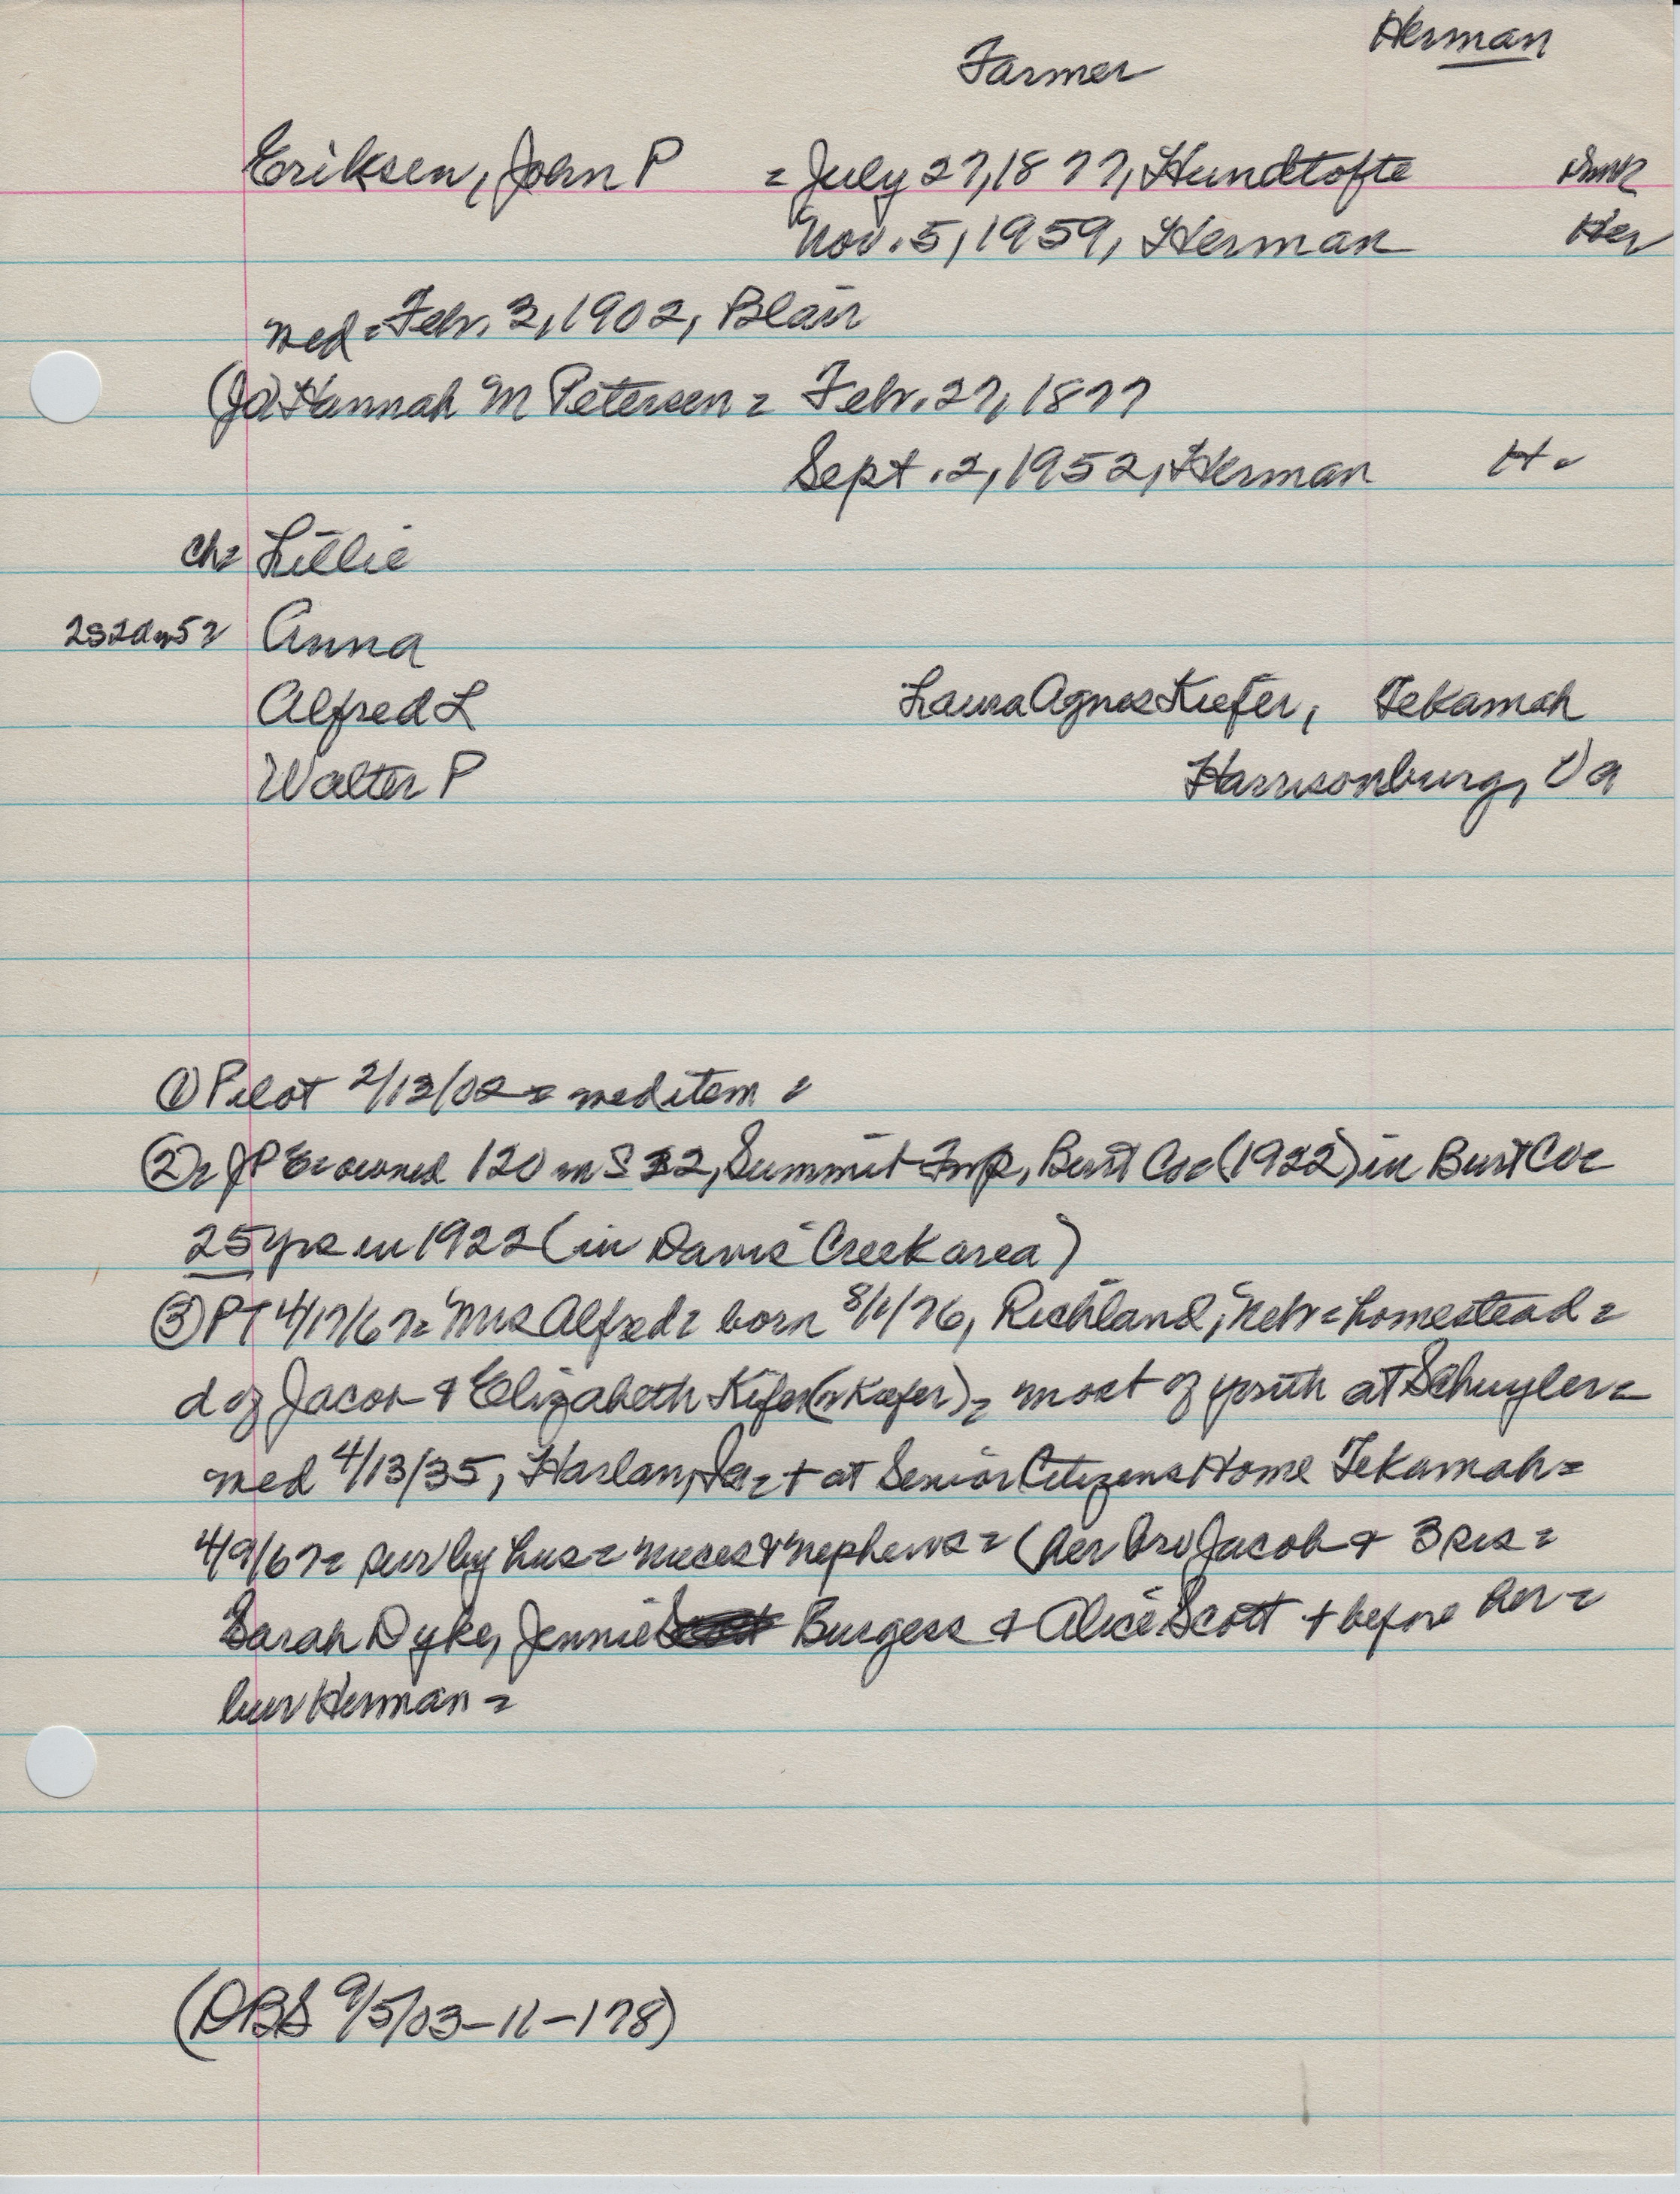 Herman
Farmer
Eriksen, John P = July 27, 1877, Hundtofte Dmk
Nov. 5, 1959, Herman Her
med = Febr. 3, 1902, Blair
(Jo) Hannah M Petersen = Febr. 27, 1877
Sept. 2, 1952, Herman H =
ch = Lillie
2s2d in 52 Anna
Alfred L Laura Agnes Kiefer, Tekamah
Walter P Harrisonburg, Va
① Pilot 2/13/02 = med item =
② = JPE = owned 120 in S 32, Summit Twp, Burt Co = (1922) in Burt Co =
25 yrs in 1922 (in Davis Creek area)
③ PT 4/17/67 = Mrs Alfred = born 8/1/76, Richland, Nebr = homestead =
d of Jacob & Elizabeth Kifer (or Kiefer) = most of youth at Schuyler =
med 4/13/35, Harlan, Ia = + at Senior Citizens Home Tekamah =
4/9/67 = sur by hus = nieces & nephews = (her bro Jacob & 3 sis =
Sarah Dyke, Jennie Burgess & Alice Scott + before her =
bur Herman =
(DBS 9/5/03-11-178)